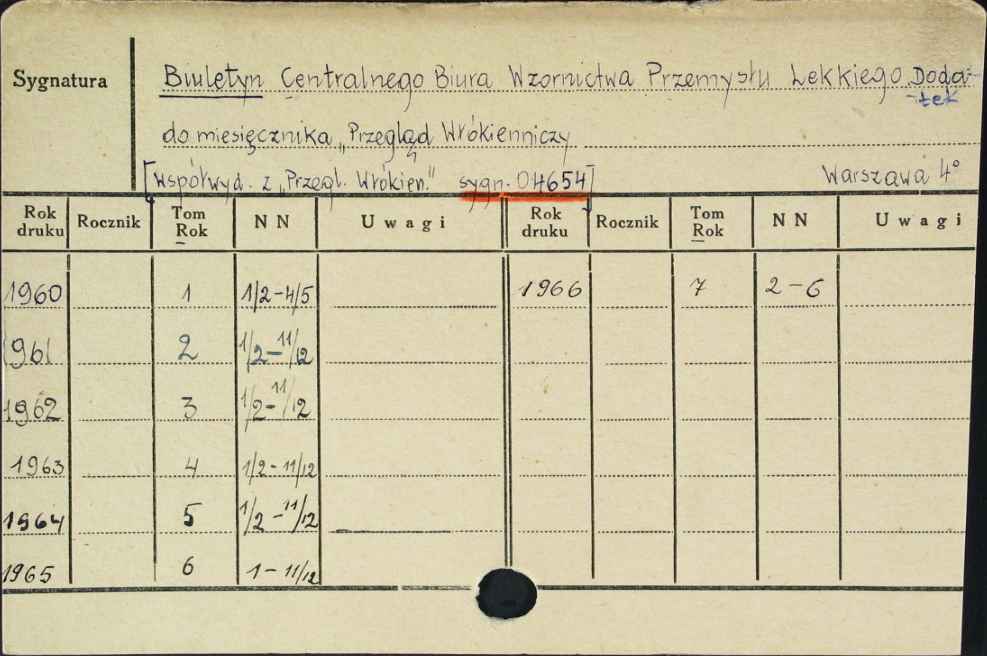 Sygnatura
Biuletyn Centralnego Biura Wzornictwa Przemysłu Lekkiego. Doda-
-tek
do miesięcznika „Przegląd Włókienniczy
[współwyd. z „Przegl. Włókien." sygn. 04654]
Warszawa 4°
Rok druku Rocznik Tom Rok NN Uwagi Rok druku Rocznik Tom Rok NN Uwagi
1960 1 1/2-4/5 1966 7 2-6
1961 2 1/2-11/12
1962 3 1/2-11/12
1963 4 1/2-11/12
1964 5 1/2-11/12
1965 6 1-11/12